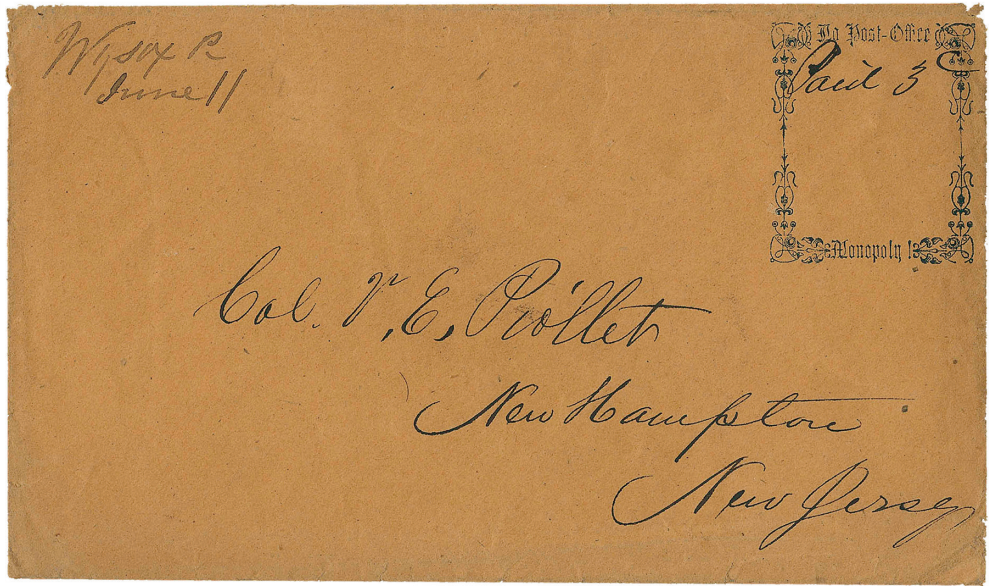 Wysox P
June 11
No Post-Office
Paid 3 C
Monopoly !
Col. V. E. Piollet
New Hampton
New Jersey